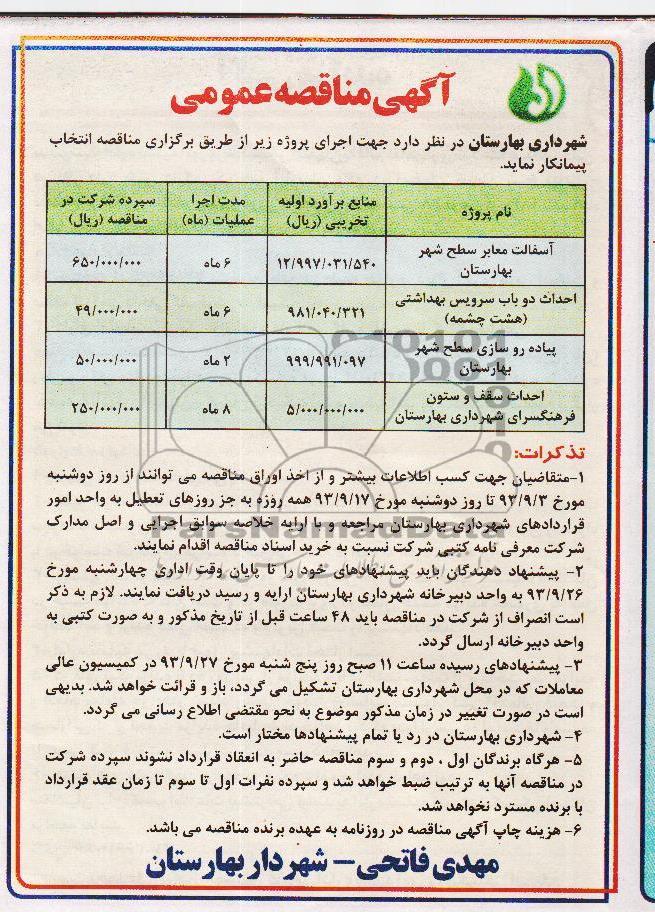 آگهی مناقصه عمومی
شهرداری بهارستان در نظر دارد جهت اجرای پروژه زیر از طریق برگزاری مناقصه انتخاب
پیمانکار نماید.
نام پروژه | منابع برآورد اولیه تخریبی (ریال) | مدت اجرا عملیات (ماه) | سپرده شرکت در مناقصه (ریال)
آسفالت معابر سطح شهر بهارستان | ۱۲/۹۹۷/۰۳۱/۵۴۰ | ۶ ماه | ۶۵۰/۰۰۰/۰۰۰
احداث دو باب سرویس بهداشتی (هشت چشمه) | ۹۸۱/۰۴۰/۳۲۱ | ۶ ماه | ۴۹/۰۰۰/۰۰۰
پیاده رو سازی سطح شهر بهارستان | ۹۹۹/۹۹۱/۰۹۷ | ۲ ماه | ۵۰/۰۰۰/۰۰۰
احداث سقف و ستون فرهنگسرای شهرداری بهارستان | ۵/۰۰۰/۰۰۰/۰۰۰ | ۸ ماه | ۲۵۰/۰۰۰/۰۰۰
تذکرات:
۱-متقاضیان جهت کسب اطلاعات بیشتر و از اخذ اوراق مناقصه می توانند از روز دوشنبه
مورخ ۹۳/۹/۳ تا روز دوشنبه مورخ ۹۳/۹/۱۷ همه روزه به جز روزهای تعطیل به واحد امور
قراردادهای شهرداری بهارستان مراجعه و با ارایه خلاصه سوابق اجرایی و اصل مدارک
شرکت معرفی نامه کتبی شرکت نسبت به خرید اسناد مناقصه اقدام نمایند.
۲- پیشنهاد دهندگان باید پیشنهادهای خود را تا پایان وقت اداری چهارشنبه مورخ
۹۳/۹/۲۶ به واحد دبیرخانه شهرداری بهارستان ارایه و رسید دریافت نمایند. لازم به ذکر
است انصراف از شرکت در مناقصه باید ۴۸ ساعت قبل از تاریخ مذکور و به صورت کتبی به
واحد دبیرخانه ارسال گردد.
۳- پیشنهادهای رسیده ساعت ۱۱ صبح روز پنج شنبه مورخ ۹۳/۹/۲۷ در کمیسیون عالی
معاملات که در محل شهرداری بهارستان تشکیل می گردد، باز و قرائت خواهد شد. بدیهی
است در صورت تغییر در زمان مذکور موضوع به نحو مقتضی اطلاع رسانی می گردد.
۴- شهرداری بهارستان در رد یا تمام پیشنهادها مختار است.
۵- هرگاه برندگان اول ، دوم و سوم مناقصه حاضر به انعقاد قرارداد نشوند سپرده شرکت
در مناقصه آنها به ترتیب ضبط خواهد شد و سپرده نفرات اول تا سوم تا زمان عقد قرارداد
با برنده مسترد نخواهد شد.
۶- هزینه چاپ آگهی مناقصه در روزنامه به عهده برنده مناقصه می باشد.
مهدی فاتحی - شهردار بهارستان
ParsNamadData